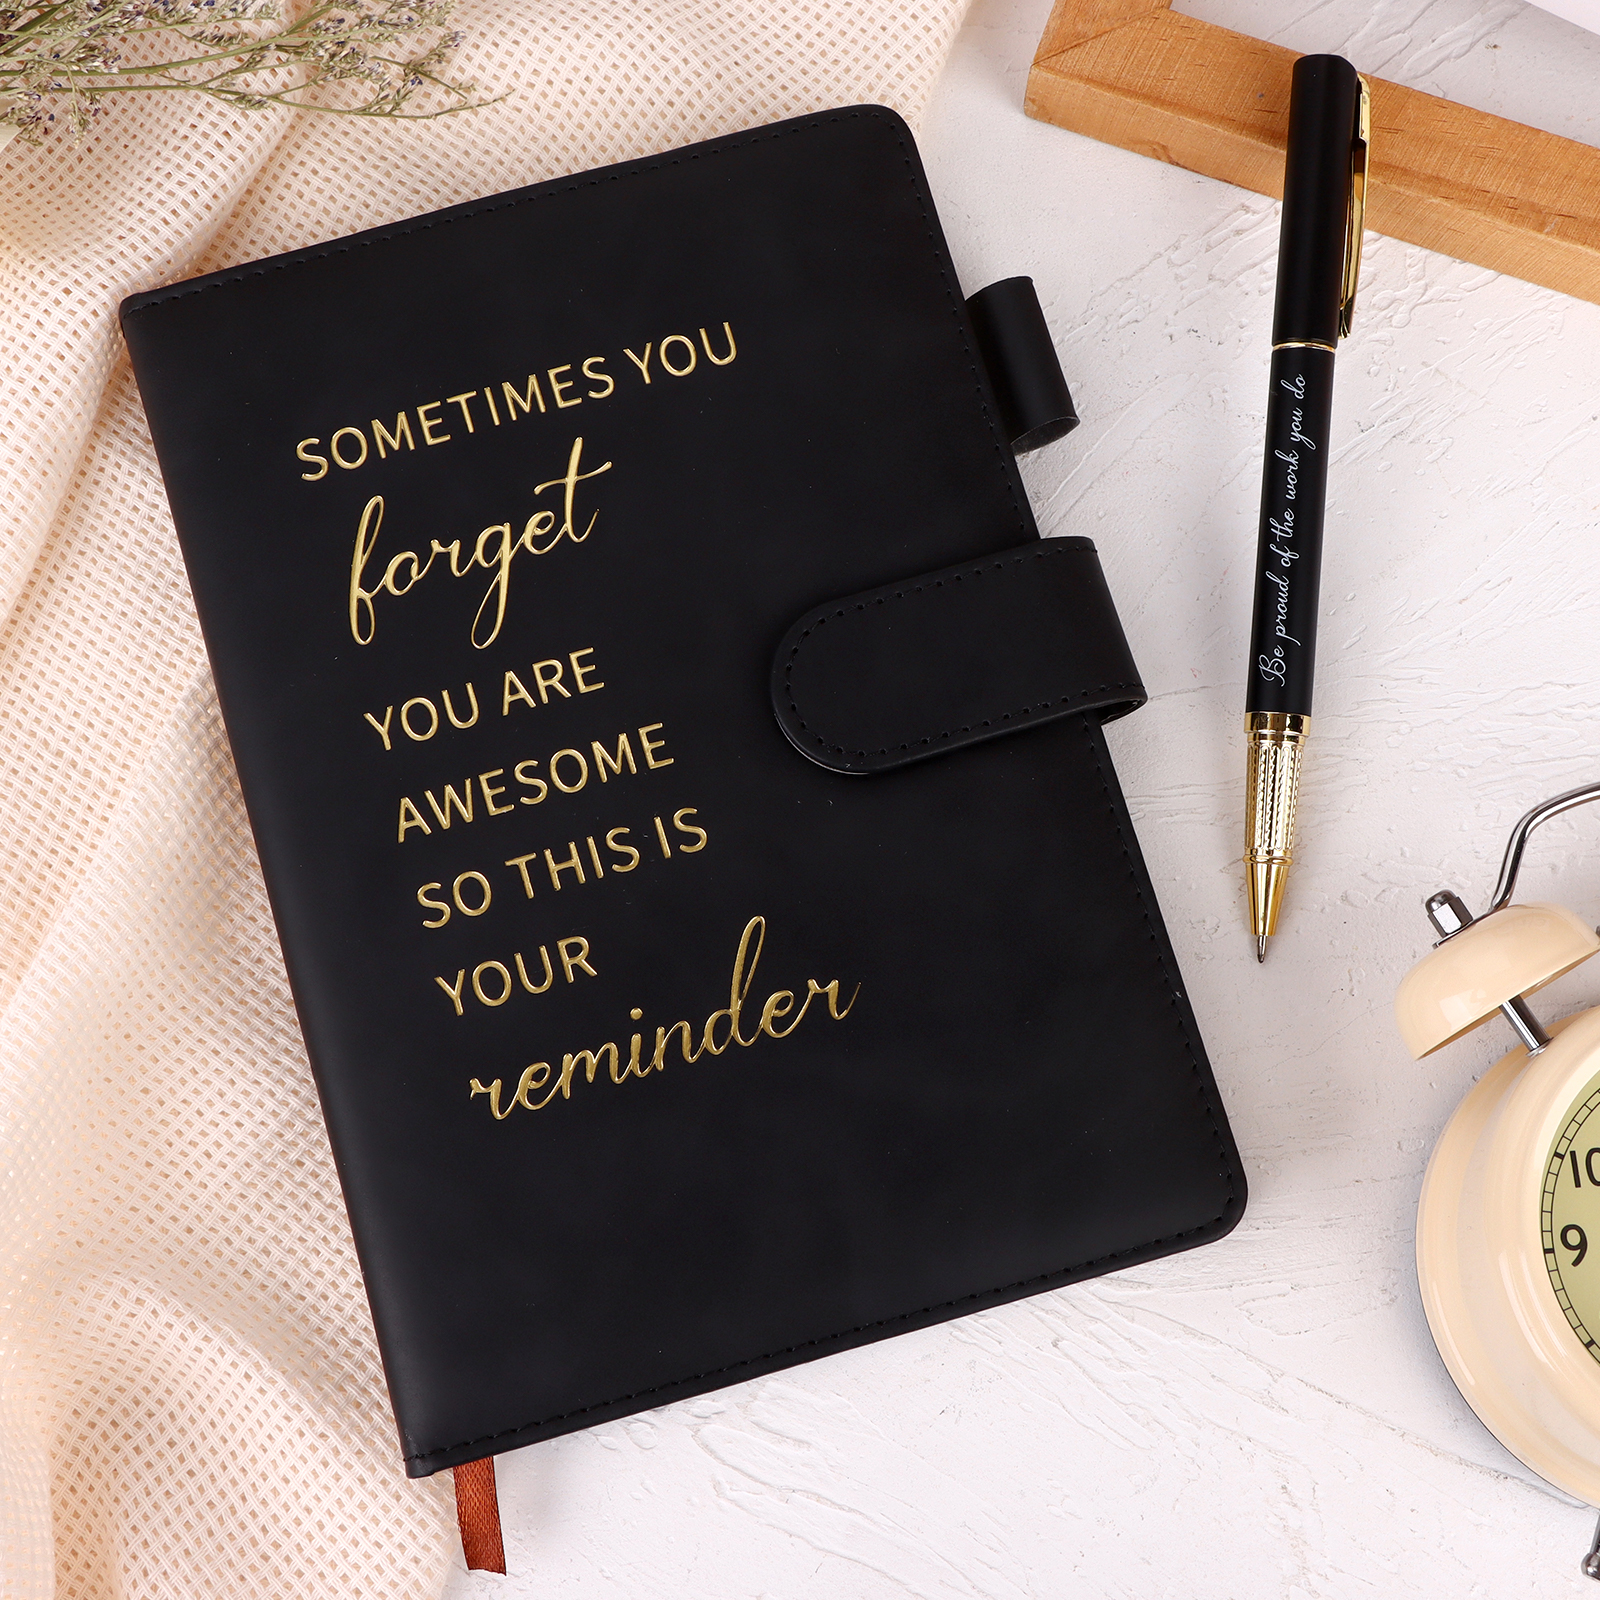 SOMETIMES YOU
forget
YOU ARE
AWESOME
SO THIS IS
YOUR
reminder
Be proud of the work you do
10
9